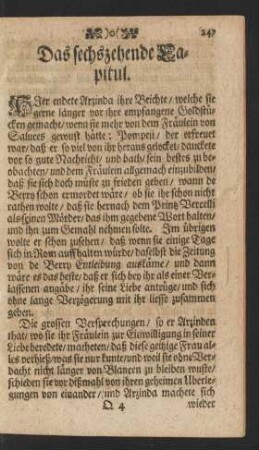 247
Das sechszehende Ca-
pitul.
HJer endete Arzinda ihre Beichte / welche sie
gerne länger vor ihre empfangene Goldstü-
cken gemacht / wenn sie mehr von dem Fräulein von
Saluces gewust hätte: Pompeji / der erfreuet
war / daß er so viel von ihr heraus gelocket / danckete
vor so gute Nachricht / und bath / sein bestes zu be-
obachten / und dem Fräulein allgemach einzubilden /
daß sie sich doch müste zu frieden geben / wann de
Berry schon ermordet wäre / ob sie ihr schon nicht
rathen wolte / daß sie hernach dem Printz Vercelli
als seinen Mörder / das ihm gegebene Wort halten /
und ihn zum Gemahl nehmen solte. Im übrigen
wolte er schon zusehen / daß wenn sie einige Tage
sich in Rom auffhalten würde / daselbst die Zeitung
von de Berry Entleibung auskäme / und dann
wäre es das beste / daß er sich bey ihr als einer Ver-
lassenen angäbe / ihr seine Liebe antrüge / und sich
ohne lange Verzögerung mit ihr liesse zusammen
geben.
Die grossen Versprechungen / so er Arzinden
that / wo sie ihr Fräulein zur Einwilligung in seiner
Liebe beredete / macheten / daß diese geitzige Frau al-
les verhieß / was sie nur kunte / und weil sie ohne Ver-
dacht nicht länger von Blancen zu bleiben wuste /
schieden sie vor dißmahl von ihren geheimen Uberle-
gungen von einander / und Arzinda machete sich
Q 4 wieder